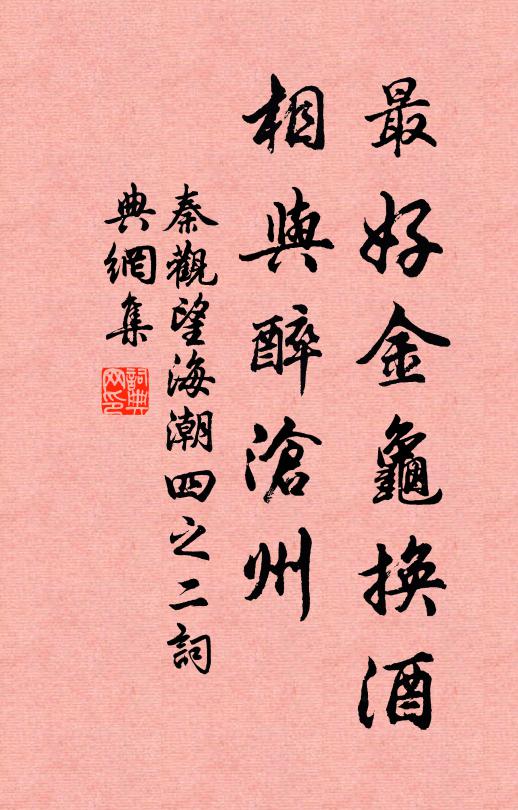 最好金龜換酒
相與醉滄州
秦觀望海潮四之二詞
典網集
詞典網印